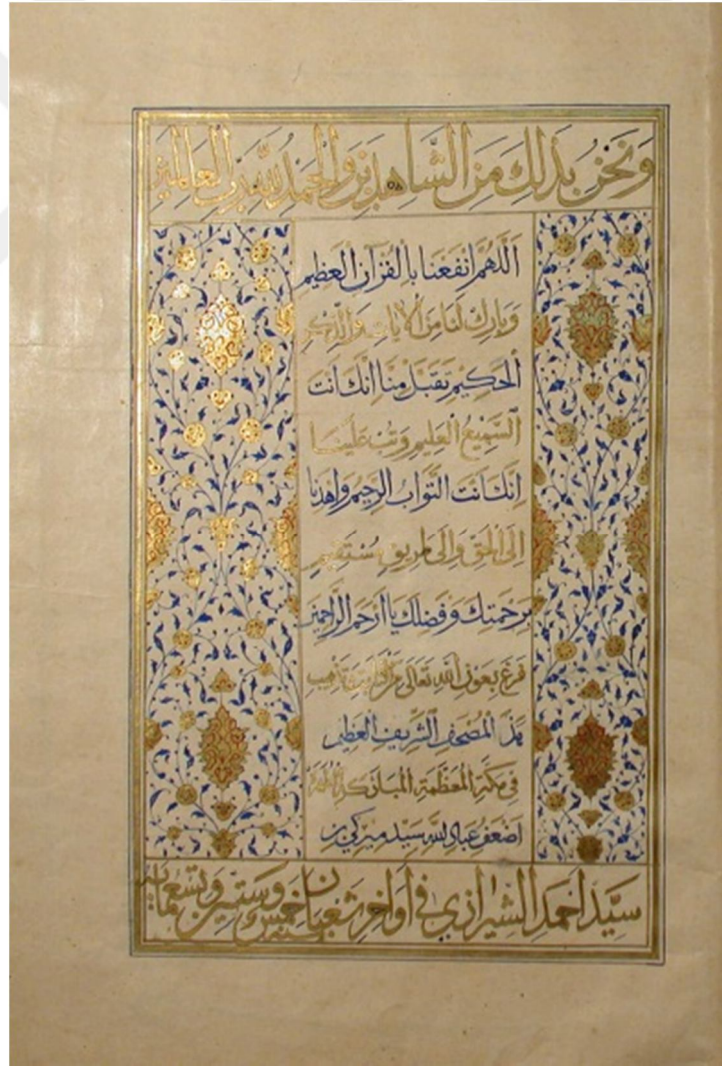 وَنَحْنُ بِذَلِكَ مِنَ الشَّاهِدِينَ وَالْحَمْدُ لِلَّهِ رَبِّ الْعَالَمِينَ
اَللَّهُمَّ انْفَعْنَا بِالْقُرْآنِ الْعَظِيمِ
وَبَارِكْ لَنَا مِنَ الْآيَاتِ وَالذِّكْرِ
الْحَكِيمِ تَقَبَّلْ مِنَّا اِنَّكَ اَنْتَ
السَّمِيعُ الْعَلِيمُ وَتُبْ عَلَيْنَا
اِنَّكَ اَنْتَ التَّوَّابُ الرَّحِيمُ وَاهْدِنَا
اِلَى الْحَقِّ وَاِلَى طَرِيقٍ مُسْتَقِيمٍ
بِرَحْمَتِكَ وَفَضْلِكَ يَا أَرْحَمَ الرَّاحِمِينَ
فرغ بعون الله تعالى تذهيب
هذا المصحف الشريف العظيم
في مكة المعظمة المباركة
اضعف عباد الله سيد ميركي بن
سيد احمد الشيرازي في أواخر شعبان خمس وستين وتسعمائة